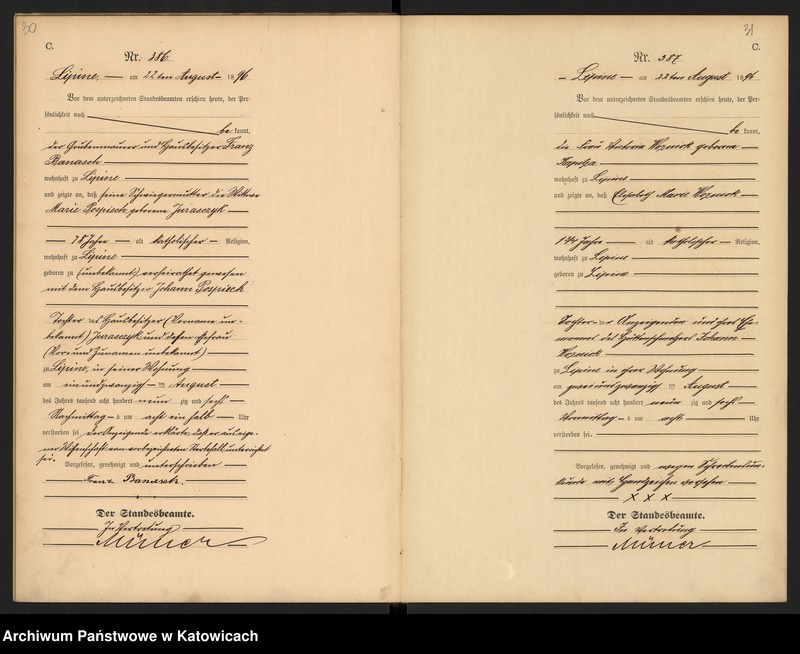 30
C.
Nr. 386
Lipine, am 22ten August 1896
Vor dem unterzeichneten Standesbeamten erschien heute, der Per-
sönlichkeit nach
be kannt,
der Grubenmaurer und Hausbesitzer Franz
Banasch
wohnhaft zu Lipine
und zeigte an, daß seine Schwiegermutter die Wittwe
Marie Pospiech geborene Juraszyk
78 Jahre alt katholischer Religion,
wohnhaft zu Lipine
geboren zu (unbekannt), verheirathet gewesen
mit dem Hausbesitzer Johann Pospiech
Tochter des Hausbesitzer (Vorname un-
bekannt) Juraszyk und dessen Ehefrau
(Vor und Zunamen unbekannt)
zu Lipine, in seiner Wohnung
am einundzwanzigsten August
des Jahres tausend acht hundert neun zig und sechs
Nachmittag s um acht ein halb Uhr
verstorben sei. Der Anzeigende erklärte, daß er aus eige-
ner Wissenschaft von vorbezeichneten Sterbefall unterrichtet
sei.
Vorgelesen, genehmigt und unterschrieben
Franz Banasch.
Der Standesbeamte.
In Vertretung
Müller
31
C.
Nr. 387
Lipine am 22ten August 1896
Vor dem unterzeichneten Standesbeamten erschien heute, der Per-
sönlichkeit nach
be kannt,
die Frau Victoria Woznick geborene
wohnhaft zu Lipine
und zeigte an, daß Elisabeth Marie Woznick
1 Jahre alt katholischer Religion,
wohnhaft zu Lipine
geboren zu Lipine
Tochter der Anzeigenden und ihres Ehe-
mannes des Johann
Woznick
zu Lipine in ihrer Wohnung
am zweiundzwanzigsten August
des Jahres tausend acht hundert neun zig und sechs
Vormittag s um acht Uhr
verstorben sei.
Vorgelesen, genehmigt und wegen Schreibensun-
kunde mit Handzeichen versehen
X X X
Der Standesbeamte.
In Vertretung
Müller
Archiwum Państwowe w Katowicach